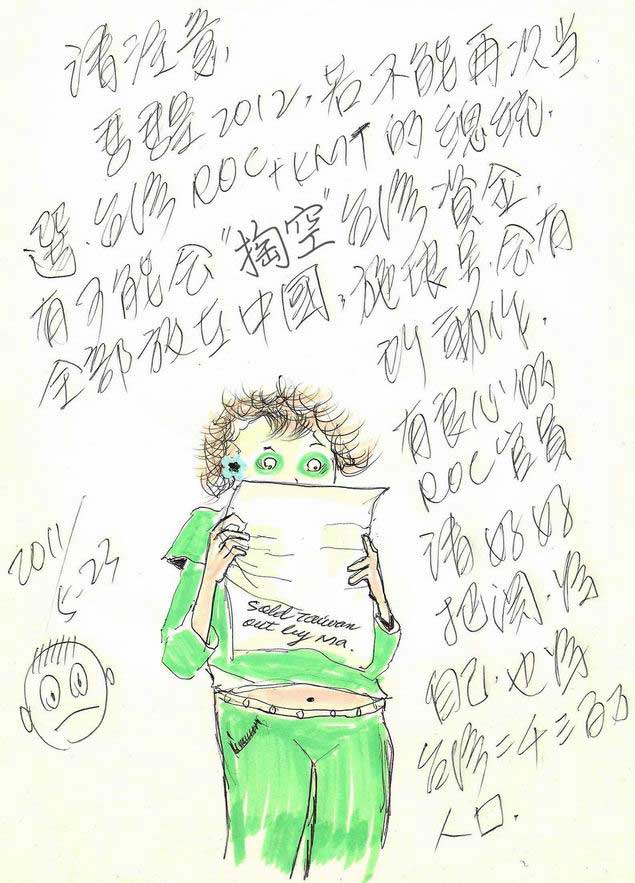 請注意,
2012,若不能再次当
選,台灣ROC+KMT的總統.
有可能会"掏空"台灣資金,
全部放在中國,施琅号,会有
所動作.
有良心的
ROC官員
請好好
把関.為
自己,也為
台灣二千三百万
人口.
2011/5.23
sold Taiwan
out by Ma.